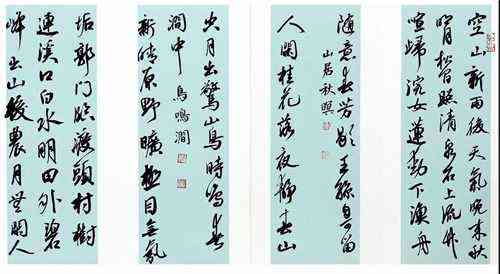 空山新雨後天氣晚來秋
明月松間照清泉石上流竹
喧歸浣女蓮動下漁舟
隨意春芳歇王孫自留
山居秋暝
人閒桂花落夜靜春山
月出驚山鳥時鳴春
澗中 鳥鳴澗
新晴原野曠極目無氛
垢郭門臨渡頭村樹
連溪口白水明田外碧
峰出山後農月無閒人